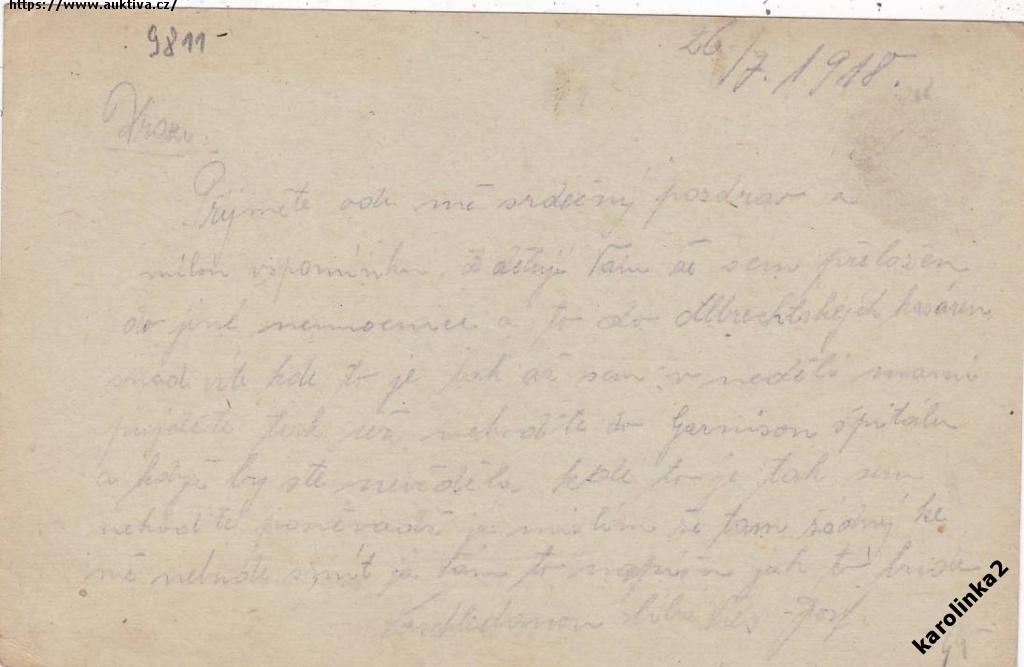 https://www.auktiva.cz/
9811
26/7. 1918.
Přijmete ode mě srdečný pozdrav a
milou vspomínku. Sděluji Vám že sem přeložen
do jiné nemocnice a to do Albrechtskejch kasáren
snad víte kde to je tak až sem v neděli mami
přijdete tak už nehoďte do Garnison špitálu
a když by ste nevěděla kde to je tak sem
nehoďte poněvadž ja mislím že tam žádný ke
mě nebude smít ja Vám to napíšu jak to bude
Nashledanou Josf.
karolinka2